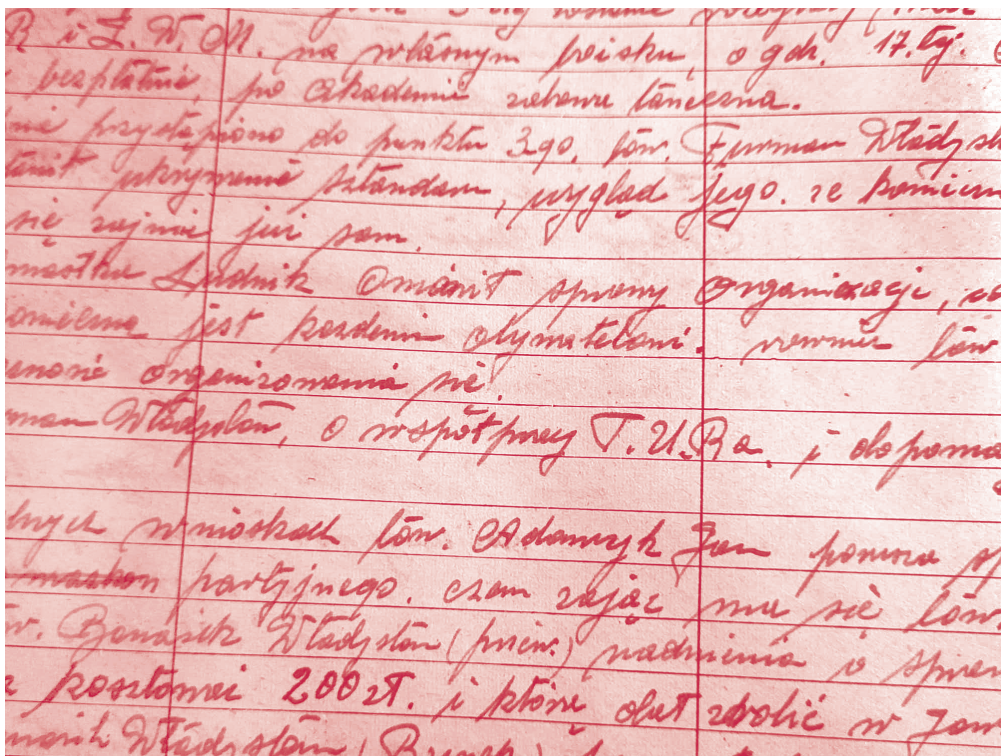 R i Z. W. M. na własnym boisku, o gdz. 17. tej.
bezpłatnie, po akademii zabawa taneczna.
przystąpiono do punktu 3go. tow. Furman Władysł
sztandaru, wygląd jego. ze
się zajmie już sam.
Ludnik omówił sprawy organizacji,
jest każdemu obywatelowi. również tow
organizowania się.
man Władysław, o współpracy T.U.Ra. i dopoma
lnych wnioskach tow. Adamczyk Jan porusza sp
partyjnego. czem zająć ma się tow
w. Banasik Władysław (przew.) nadmienia o spraw
kosztował 200 zł. i które dał zrobić w Jaw
nasik Władysław